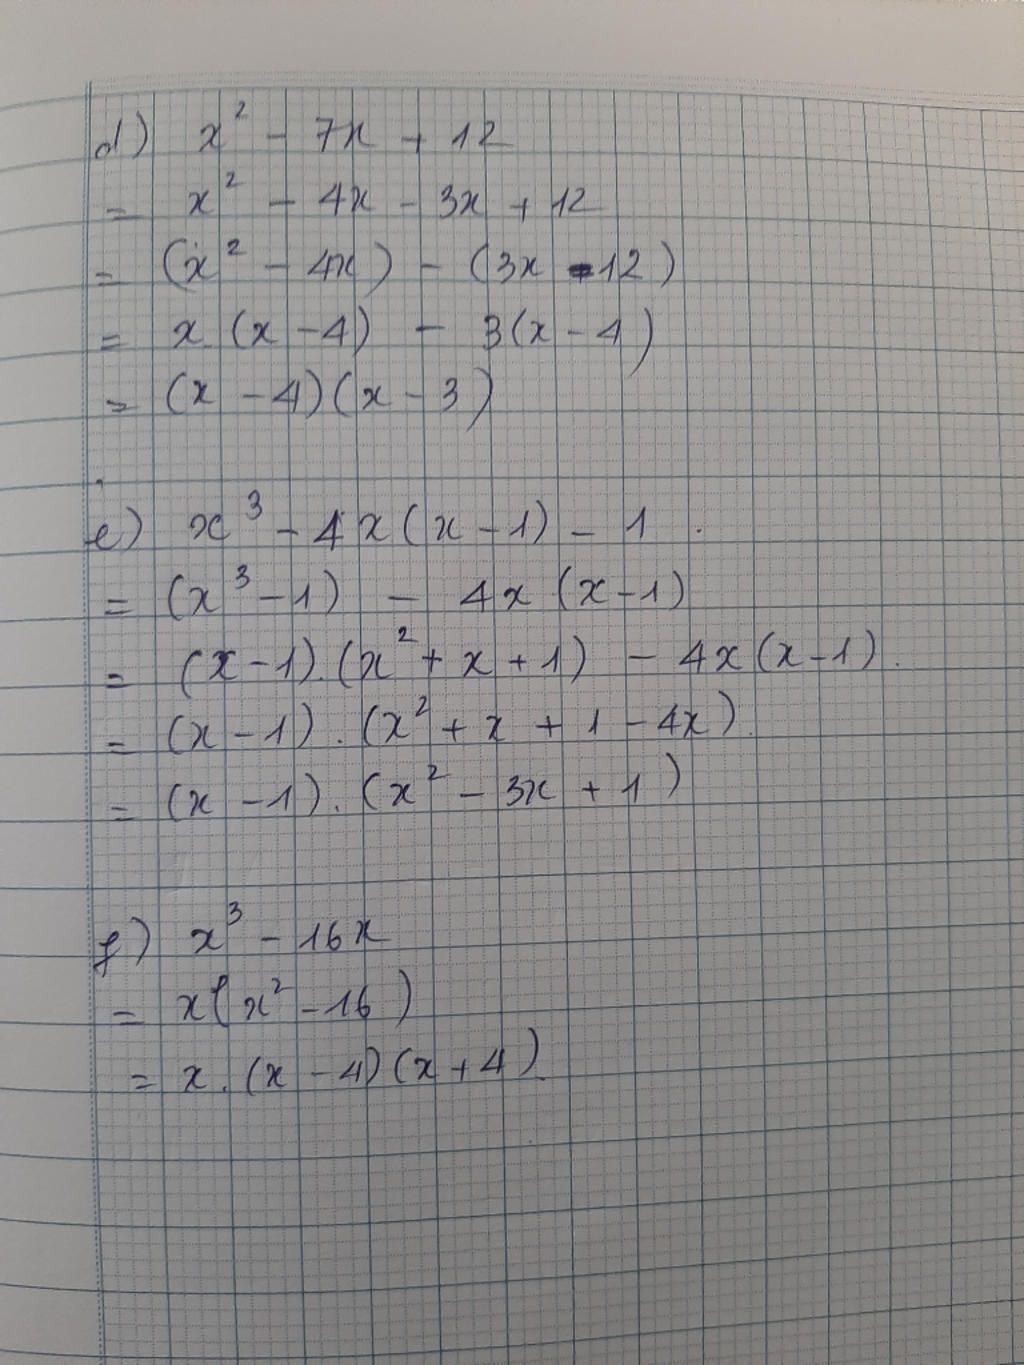 d) x² - 7x + 12
= x² - 4x - 3x + 12
= (x² - 4x) - (3x - 12)
= x (x - 4) - 3(x - 4)
= (x - 4)(x - 3)
e) x³ - 4x(x - 1) - 1 .
= (x³ - 1) - 4x (x - 1)
= (x - 1).(x² + x + 1) - 4x(x - 1).
= (x - 1).(x² + x + 1 - 4x).
= (x - 1).(x² - 3x + 1)
f) x³ - 16x
= x(x² - 16)
= x.(x - 4)(x + 4).